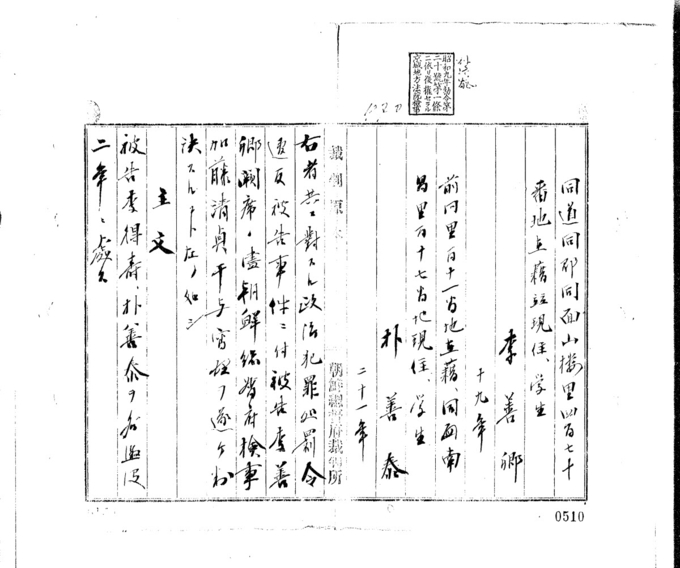 同道同郡同面山機里四百七十
番地在籍並現住、学生
李善卿
十九年
前同里百十一番地在籍、同面南
昌里百十七番地現住、学生
朴善泰
二十一年
右者共ニ對スル政治犯罪処罰令
違反被告事件ニ付被告李善
卿闕席ノ儘朝鮮総督府検事
加藤清貞干与審理ヲ遂ケ判
決スルコト左ノ如シ
主文
被告李得壽、朴善泰ヲ各懲役
二年ニ處ス
朝鮮總督府裁判所
昭和九年勅令第
二十號第一條
ニ依リ後
京城地方法院
0510